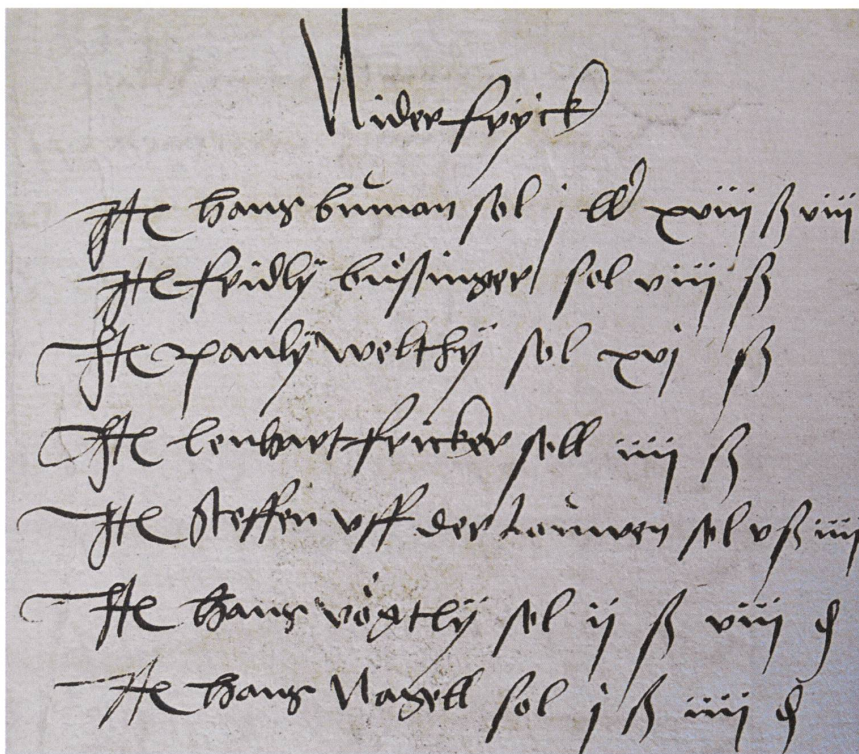 Niderfryck
Itē hans bůman sol j lb xviij ß viij
Itē fridlÿ bůsinger sol viij ß
Itē paulÿ welthÿ sol xvj ß
Itē lenhart fricker soll iiij ß
Itē steffen vff der louwen sol v ß iiij
Itē hans vögtlÿ sol ij ß viij d
Itē hans Nagell sol j ß iiij d